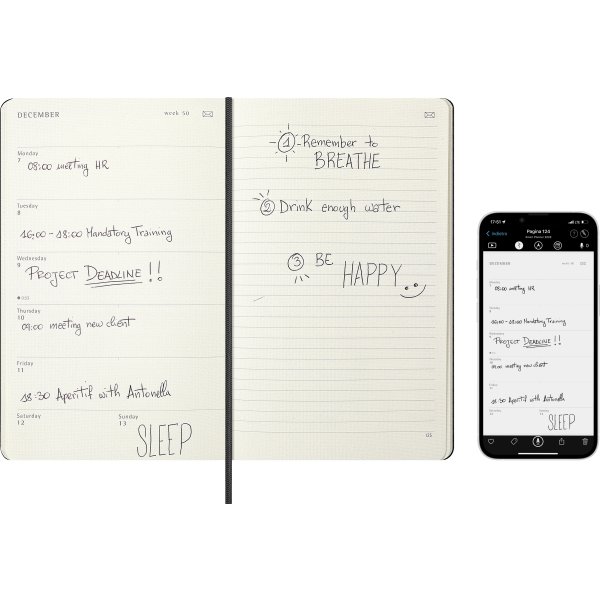 DECEMBER
week 50
Monday
7
08:00 meeting HR
Tuesday
8
16:00 - 18:00 Mandatory Training
Wednesday
9
PROJECT DEADLINE!!
Thursday
10
09:00 meeting new client
Friday
11
18:30 Aperitif with Antonella
Saturday
12
Sunday
13
SLEEP
1 - Remember to
BREATHE
2 Drink enough water
3 BE
HAPPY
125
17:51
Indietro
Pagina 124
DECEMBER
week 50
Monday
7
08:00 meeting HR
Tuesday
8
16:00 - 18:00 Mandatory Training
Wednesday
9
PROJECT DEADLINE!!
Thursday
10
09:00 meeting new client
Friday
11
18:30 Aperitif with Antonella
Saturday
12
Sunday
13
SLEEP